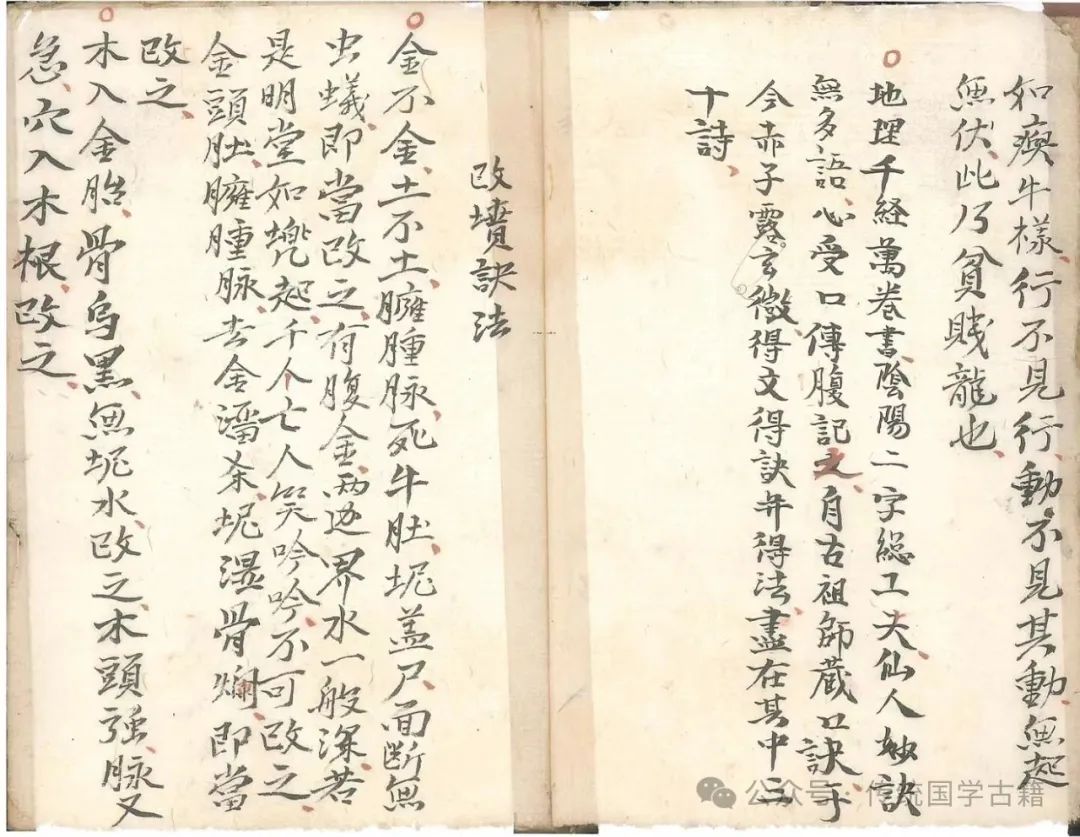 如瘓牛樣行不見行動不見其動無起
無伏此乃貧賎龍也
地理千経萬卷書陰陽二字総工夫仙人妙訣
無多語心受口傳腹記之自古祖師蔵口訣于
今赤子露玄微得文得訣并得法盡在其中三
十詩
改墳訣法
金不金土不土臃腫脉死牛肚坭盖尸面断無
虫蟻即當改之有腹金兩边界水一般深若
是明堂如堯起千人亡人笑吟吟不可改之
金頭肚臃腫脉去金濡杀坭濕骨爛即當
改之
木入金胎骨烏黑無坭水改之木頭强脉又
急穴入木根改之
公众号·传统国学古籍